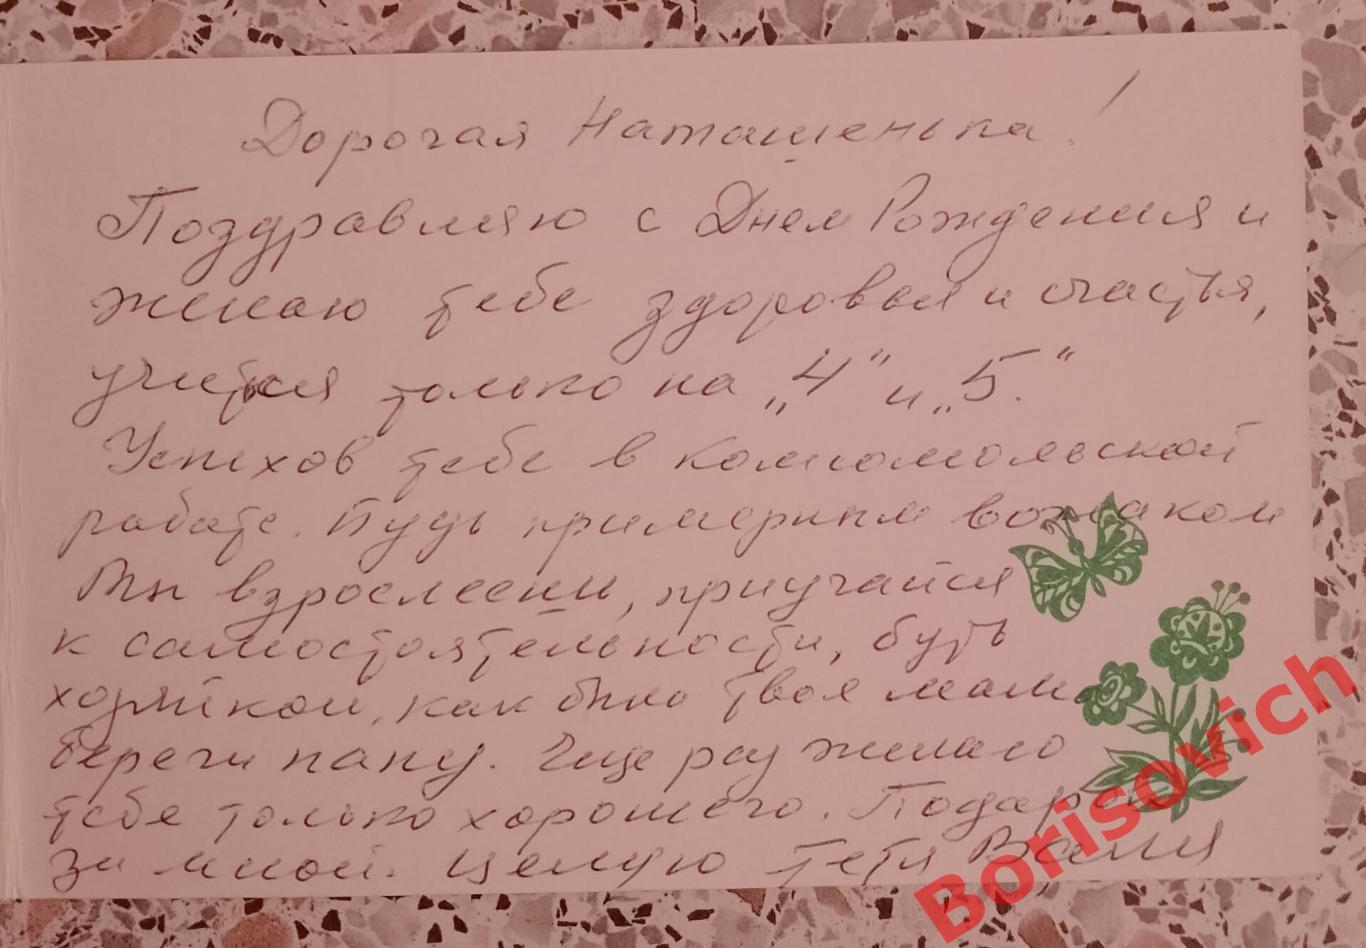 Дорогая Наташенька!
Поздравляю с Днем Рождения и
желаю тебе здоровья и счастья,
учиться только на „4“ и „5.“
Успехов тебе в комсомольской
работе. Будь примерным вожаком
Ты взрослеешь, приучайся
к самостоятельности, будь
хозяйкой, как была твоя мама
береги папу. Еще раз желаю
тебе только хорошего. Подарок
за мной. Целую тетя
Borisovich